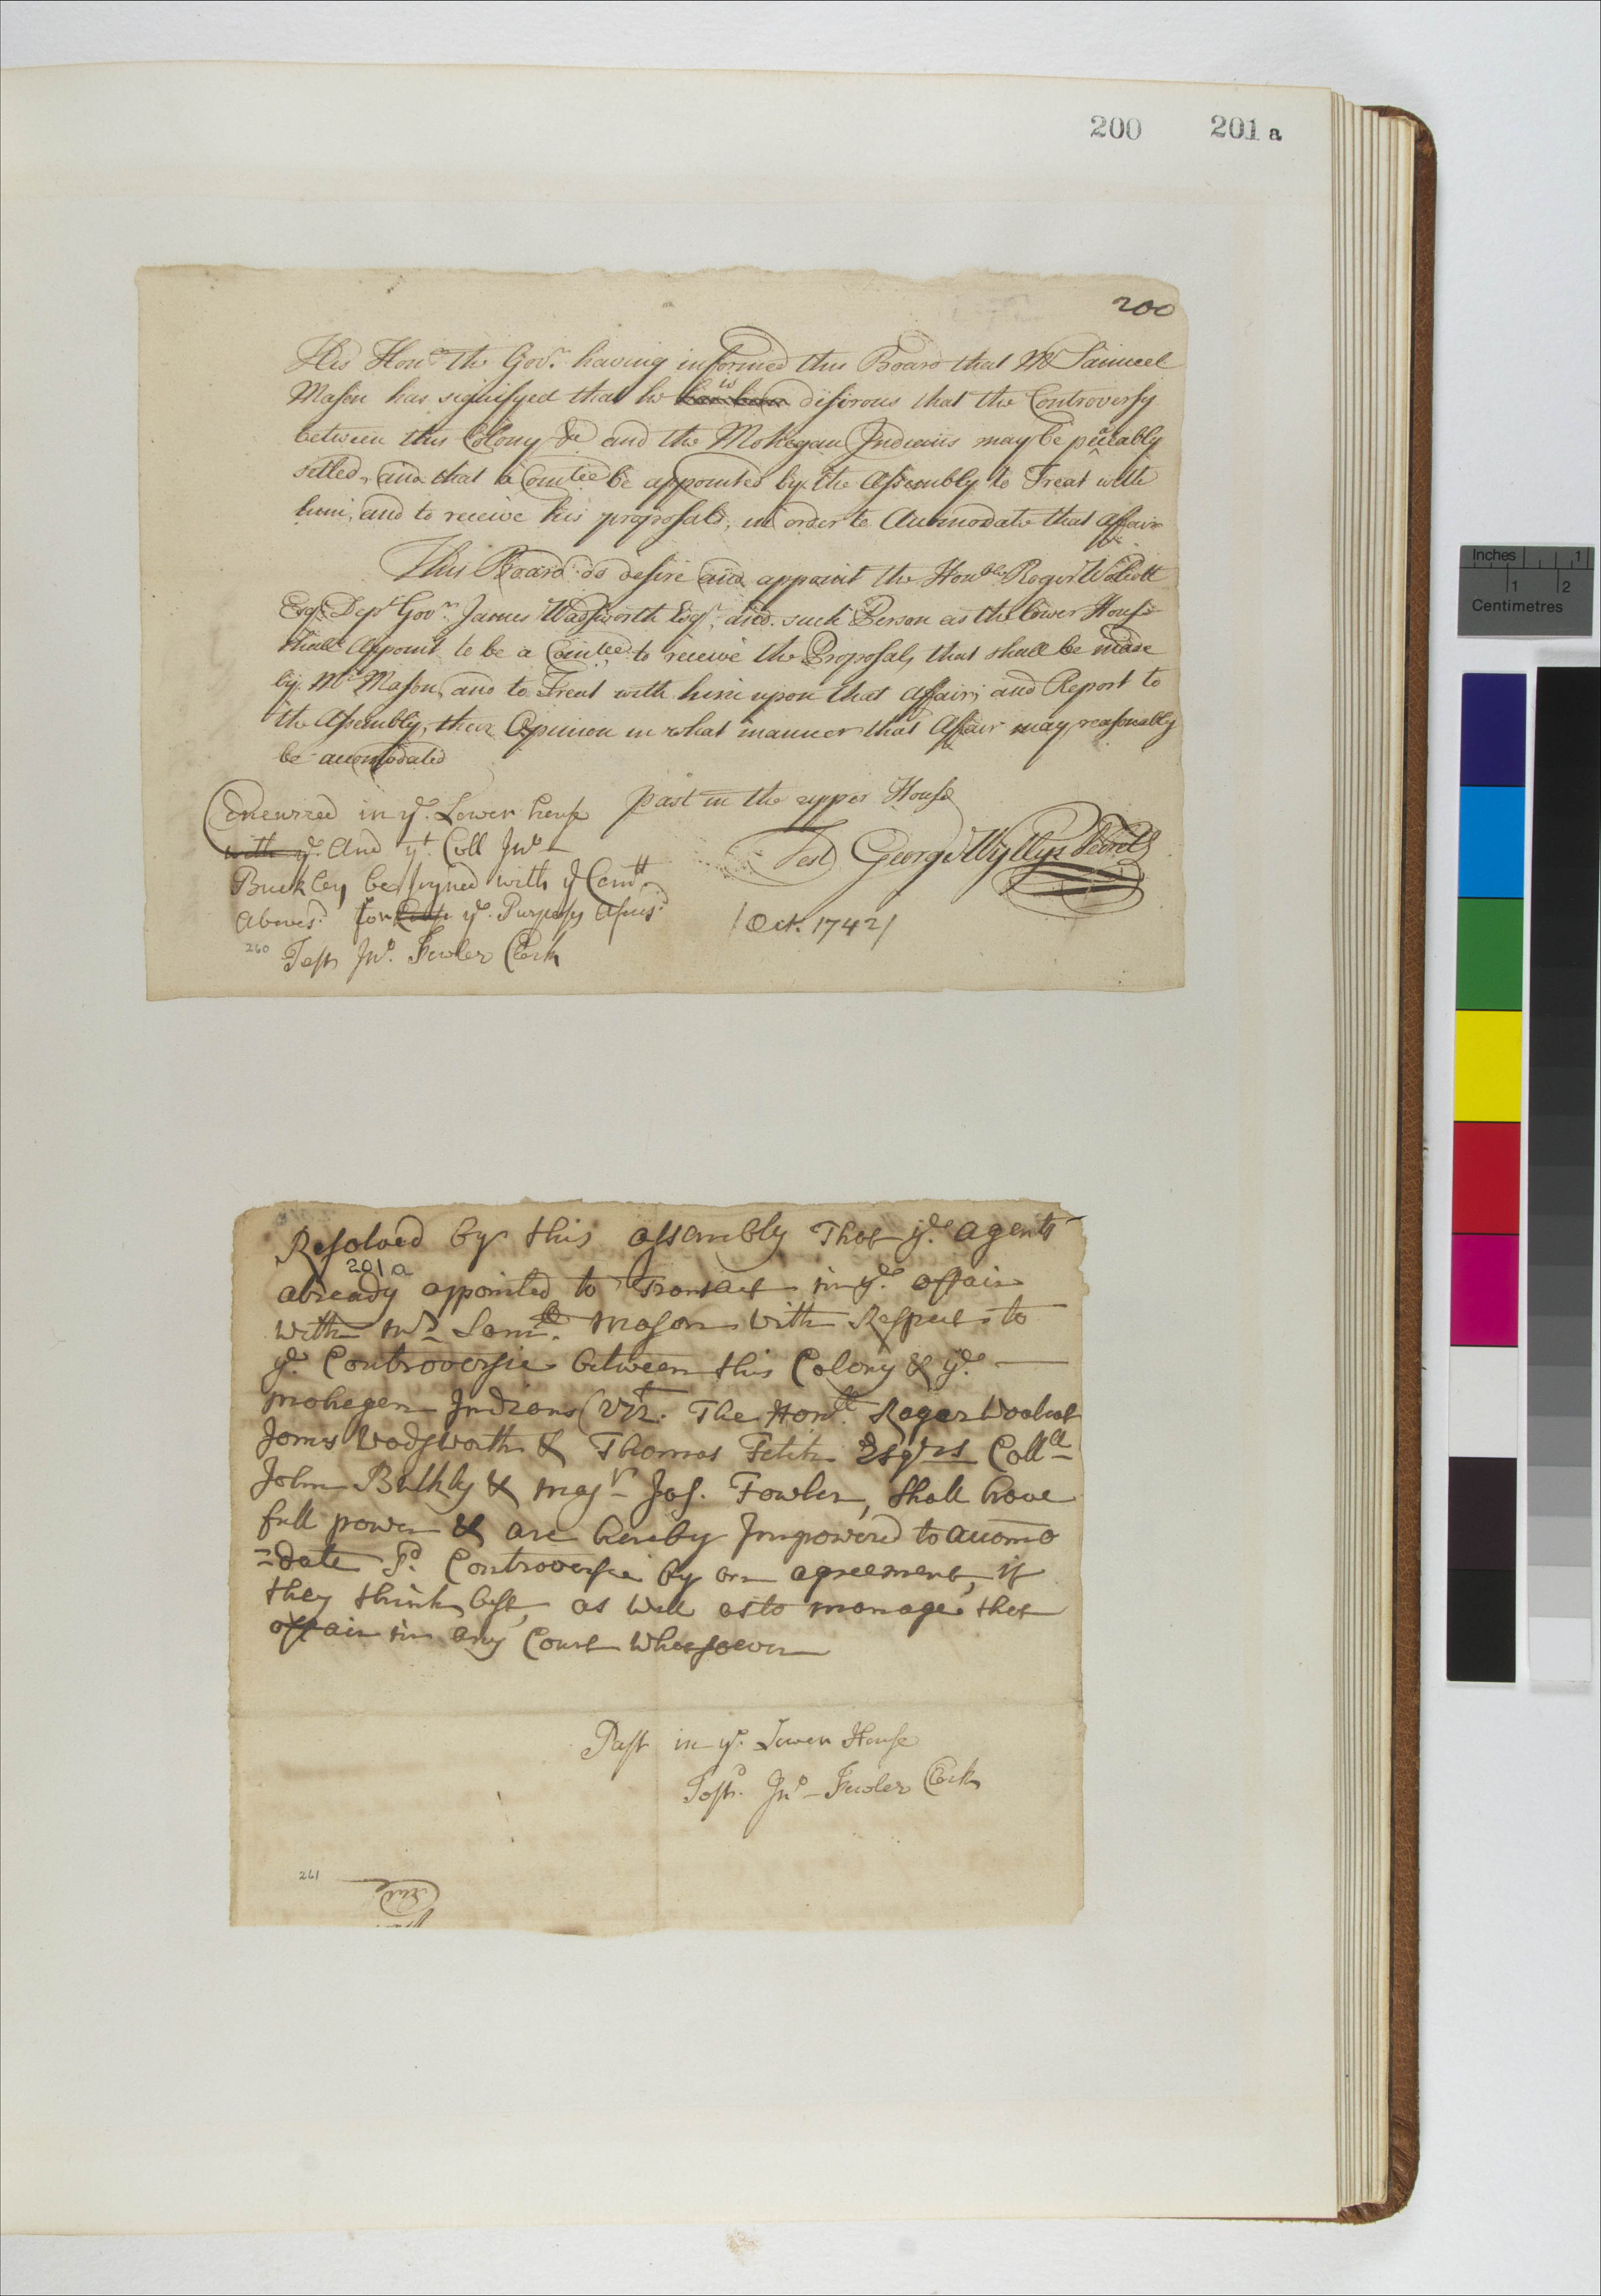 200 201a
200
His Honr the Govr. having informed this Board that Mr Samuel
Mason has signifyed that he has been is desirous that the Controversy
between this Colony &c and the Mohegan Indians may be peaceably
setled, and that a Comtee be appointed by the Assembly to Treat with
him, and to receive his proposals, in order to Accomodate that affair
This Board do desire and appoint the Honble Roger Wolcott
Esqr. Dept Govr. James Wadsworth Esqr. and such Person as the lower House
shall Appoint to be a Comtee to receive the Proposals that shall be made
by Mr Mason, and to Treat with him upon that affair; and Report to
the Assembly, their Opinion in what manner that Affair may reasonably
be accomodated
past in the upper House
Test George Wyllys Secret
/Oct. 1742/
Concurred in ye. Lower house
with ye. And yt. Coll Jno
Buckley be joyned with ye Comtt
Aboves.d for ye. Purposs afores.d
260 Test Jno. Fowler Clerk
Resolved by this assembly That ye. agents
201a
already appointed to Transact in ye. affair
with Mr. Samll. Mason with Respect to
ye Controversie between this Colony & ye.
mohegen Indians (Vizt. The Honll. Roger Woolcot
James Wadsworth & Thomas Fitch Esqrs Colll
John Bulkly & majr Jos. Fowler, shall have
full power & are hereby Impowered to accomo
=date sd. Controversie by an agreement, if
they think best, as well as to manage that
affair in any Court whatsoever
Past in ye. Lower House
Test. Jno Fowler Clerk
261